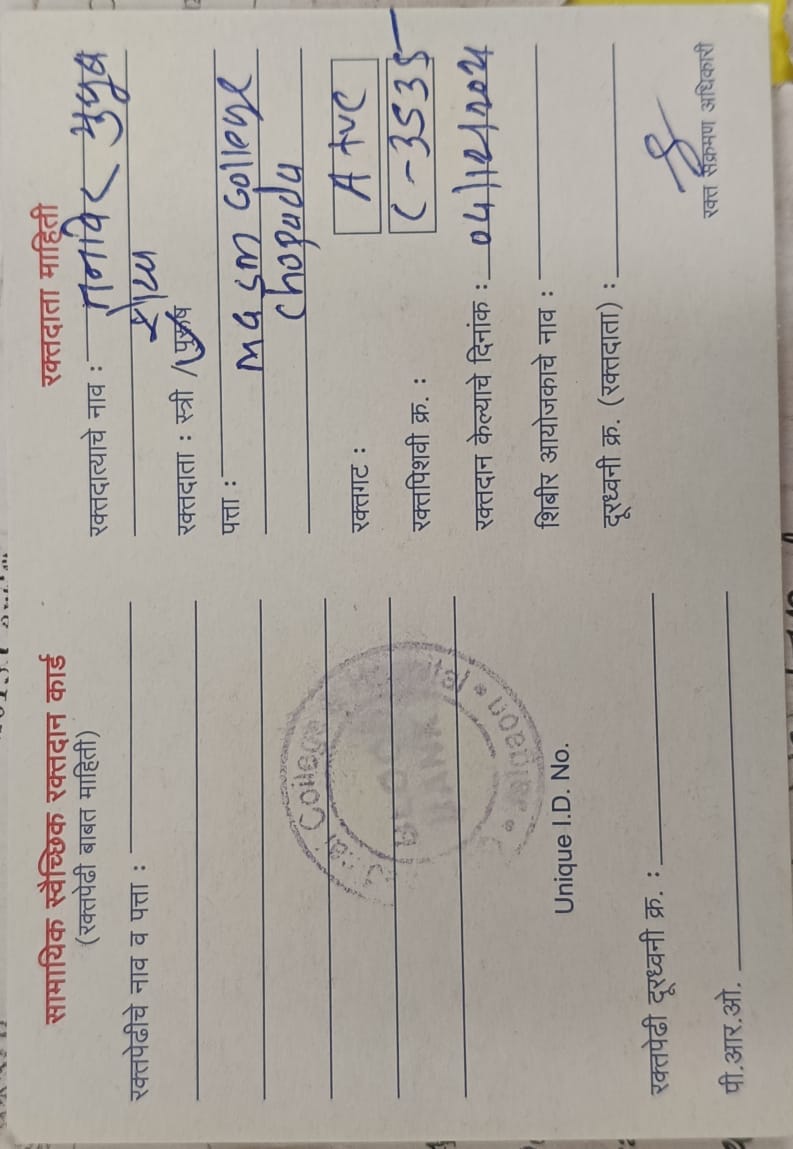 सामायिक स्वैच्छिक रक्तदान कार्ड
(रक्तपेढी बाबत माहिती)
रक्तपेढीचे नाव व पत्ता :
Unique I.D. No.
रक्तपेढी दूरध्वनी क्र. :
पी.आर.ओ.
College
BLOOD
BANK
रक्तदाता माहिती
रक्तदात्याचे नाव :
रक्तदाता : स्त्री / पुरूष
पत्ता : MGSM College
Chopada
रक्तगट : A +ve
रक्तपिशवी क्र. : C-3535
रक्तदान केल्याचे दिनांक : 04/12/2024
शिबीर आयोजकाचे नाव :
दूरध्वनी क्र. (रक्तदाता) :
रक्त संक्रमण अधिकारी